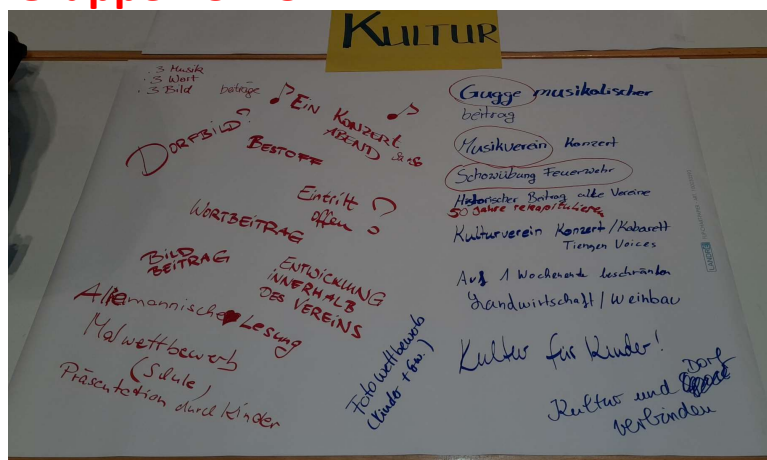 KULTUR
. 3 Musik
. 3 Wort
. 3 Bild beträge
EIN KONZERT
ABEND
DORFBILD?
BESTOFF
Eintritt
offen?
WORTBEITRAG
BILD
BEITRAG
ENTWICKLUNG
INNERHALB
DES VEREINS
Allemannische Lesung
Malwettbewerb
(Schule)
Präsentation durch Kinder
Fotowettbewerb
(Kinder + Erw.)
Gugge musikalischer
beitrag
Musikverein Konzert
Schowübung Feuerwehr
Historischer Beitrag alle Vereine
50 Jahre rekapitulieren
Kulturverein Konzert/Kabarett
Tiengen Voices
Auf 1 Wochenende beschränken
Landwirtschaft / Weinbau
Kultur für Kinder!
Kultur und Dorf
verbinden